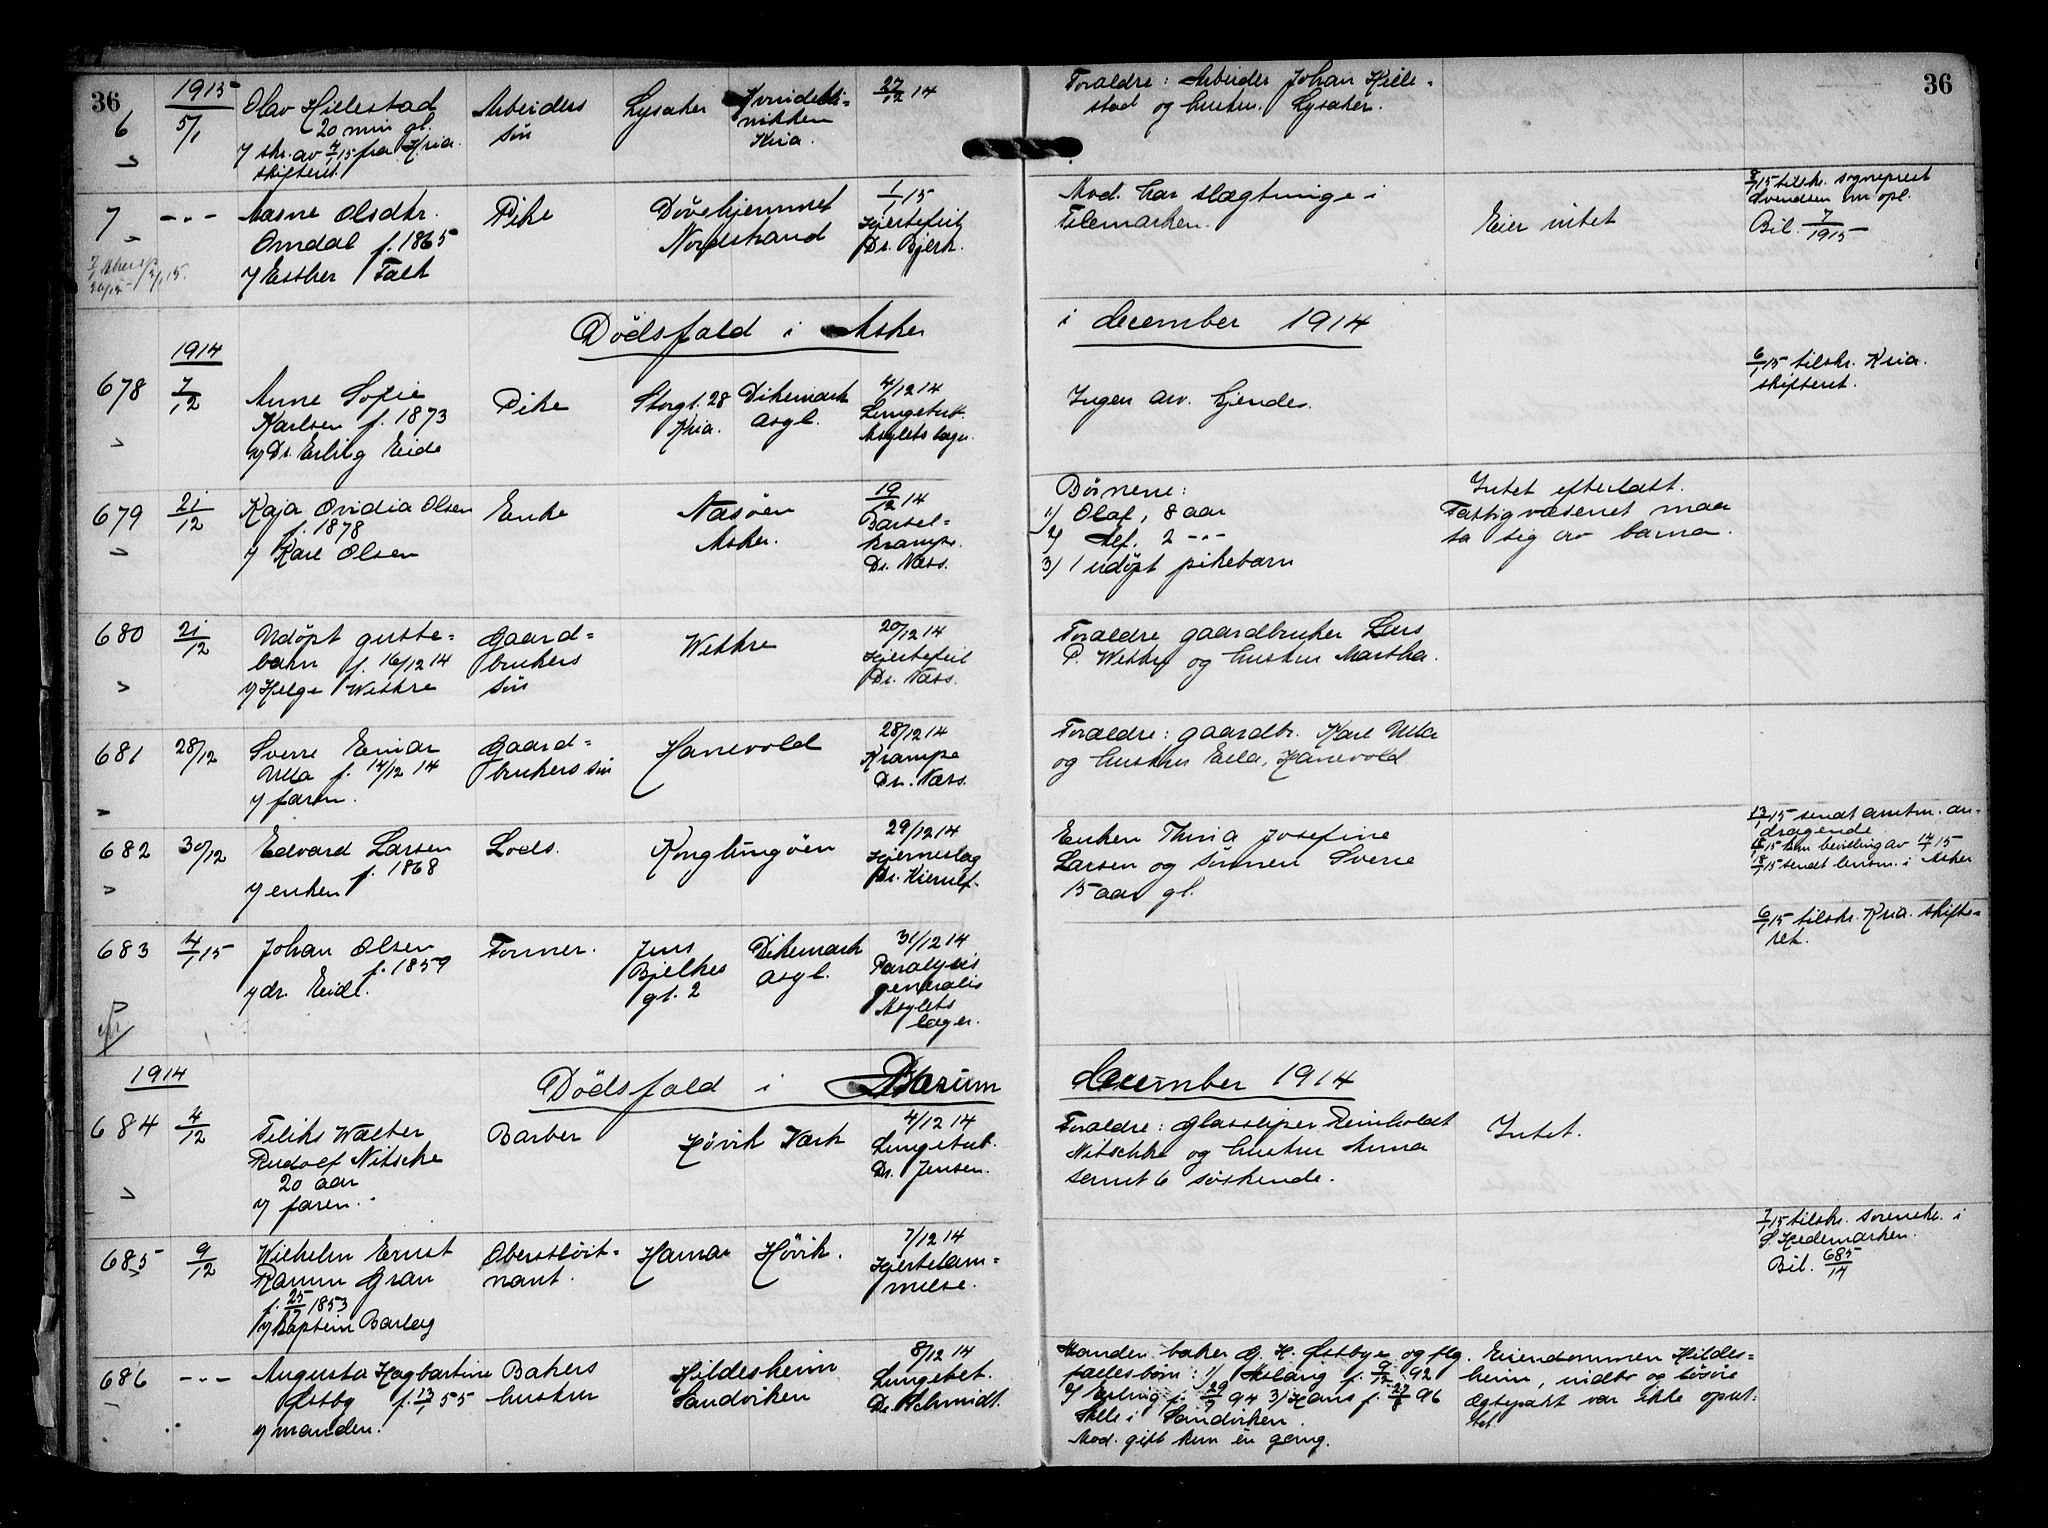 36
36
1915
6
5/1
Olav Hjelestad
20 min gl.
skr. av 4/1 15 fra Kria.
skifteret
Arbeiders
søn
Lysaker
Kvindekli-
nikken
Kria.
27/12 14
Foraldre: Arbeider Johan Hjele-
stad og hustru. Lysaker.
7
- " -
Aasne Olsdtr.
Omdal f. 1865
v/ Esther Falk
Pike
Døvehjemmet
Nordstrand
1/1 15
Hjertefeil
Dr. Bjerk.
Avd. har slægtninge i
Telemarken.
Eier intet
8/1 15 tilskr. sogneprest
Svendsen om opl.
Bil. 7/1915
Dödsfald i Asker
i december 1914
1914
678
7/12
Anne Sofie
Karlsen f. 1873
v/ Dr. Erling Eide
Pike
Storgt. 28
Kria.
Dikemark
asyl.
4/12 14
Lungetub.
Asylets læge.
Ingen arv. kjendes.
6/1 15 tilskr. Kria.
skifteret.
679
21/12
Kaja Ovidia Olsen
f. 1878
v/ Karl Olsen
Enke
Næsøen
Asker.
19/12 14
Barsel-
krampe.
Dr. Næss.
Børnene:
1/ Olaf, 8 aar
2/ Alf. 2 - " -
3/ 1 udøpt pikebarn
Intet efterlatt.
Fattigvæsenet maa
ta sig av barna.
680
21/12
Udöpt gutte-
barn f. 16/12 14
v/ Helge Wettre
Gaard-
brukers
søn
Wettre
20/12 14
Hjertefeil
Dr. Næss.
Foraldre gaardbruker Lars
P. Wettre og hustru Martha.
681
28/12
Sverre Einar
Ulla f. 14/12 14
v/ faren.
Gaard-
brukers søn
Hanevold
28/12 14
Krampe
Dr. Næss.
Foraldre: gaardbr. Karl Ulla
og hustru Ella, Hanevold
682
30/12
Edvard Larsen
f. 1868
v/ enken
Lods.
Konglungøen
29/12 14
Hjerneslag
Dr. Kierulf.
Enken Thina Josefine
Larsen og sønnen Sverre
15 aar gl.
13/1 15 sendt amtm. an-
dragende
15/1 15 kom bevilling av 14/1 15
18/1 15 sendt lensm. i Asker
683
4/1 15
Johan Olsen
f. 1859
v/ dr. Eide.
Former.
Jens
Bjelkes
gt. 2
Dikemark
asyl.
31/12 14
Paralysis
generalis
Asylets
læger.
6/1 15 tilskr. Kria. skifte-
ret.
1914
Dödsfald i Bærum
december 1914
684
4/12
Feliks Walter
Rudolf Nitsche
20 aar
v/ faren.
Barber
Høvik Værk
4/12 14
Lungetub.
Dr. Jensen.
Foraldre: Glassliper Reinholdt
Nitschke og hustru Anna
samt 6 søskende.
Intet.
685
9/12
Wilhelm Ernst
Ramm Gran
f. 25/12 1853
v/ Kaptein Barlag
Oberstløit-
nant.
Hamar
Høvik.
7/12 14
Hjertelam-
melse.
7/1 15 tilskr. sorenskr. i
S. Hedemarken.
Bil. 685/14
686
- " -
Augusta Hagbartine
Østby f. 13/1 55
v/ manden.
Bakers
hustru
Hildesheim
Sandviken
8/12 14
Lungebet.
Dr. Schmidt.
Manden baker G. H. Østbye og flg.
fællesbørn: 1/ Aslaug f. 9/12 92
2/ Erling f. 29/7 94 3/ Hans f. 27/8 96
Alle i Sandviken.
Avd. gift kun én gang.
Eiendommen Hildes-
heim, indbo og løsøre
Ægtepakt var ikke opret-
tet.